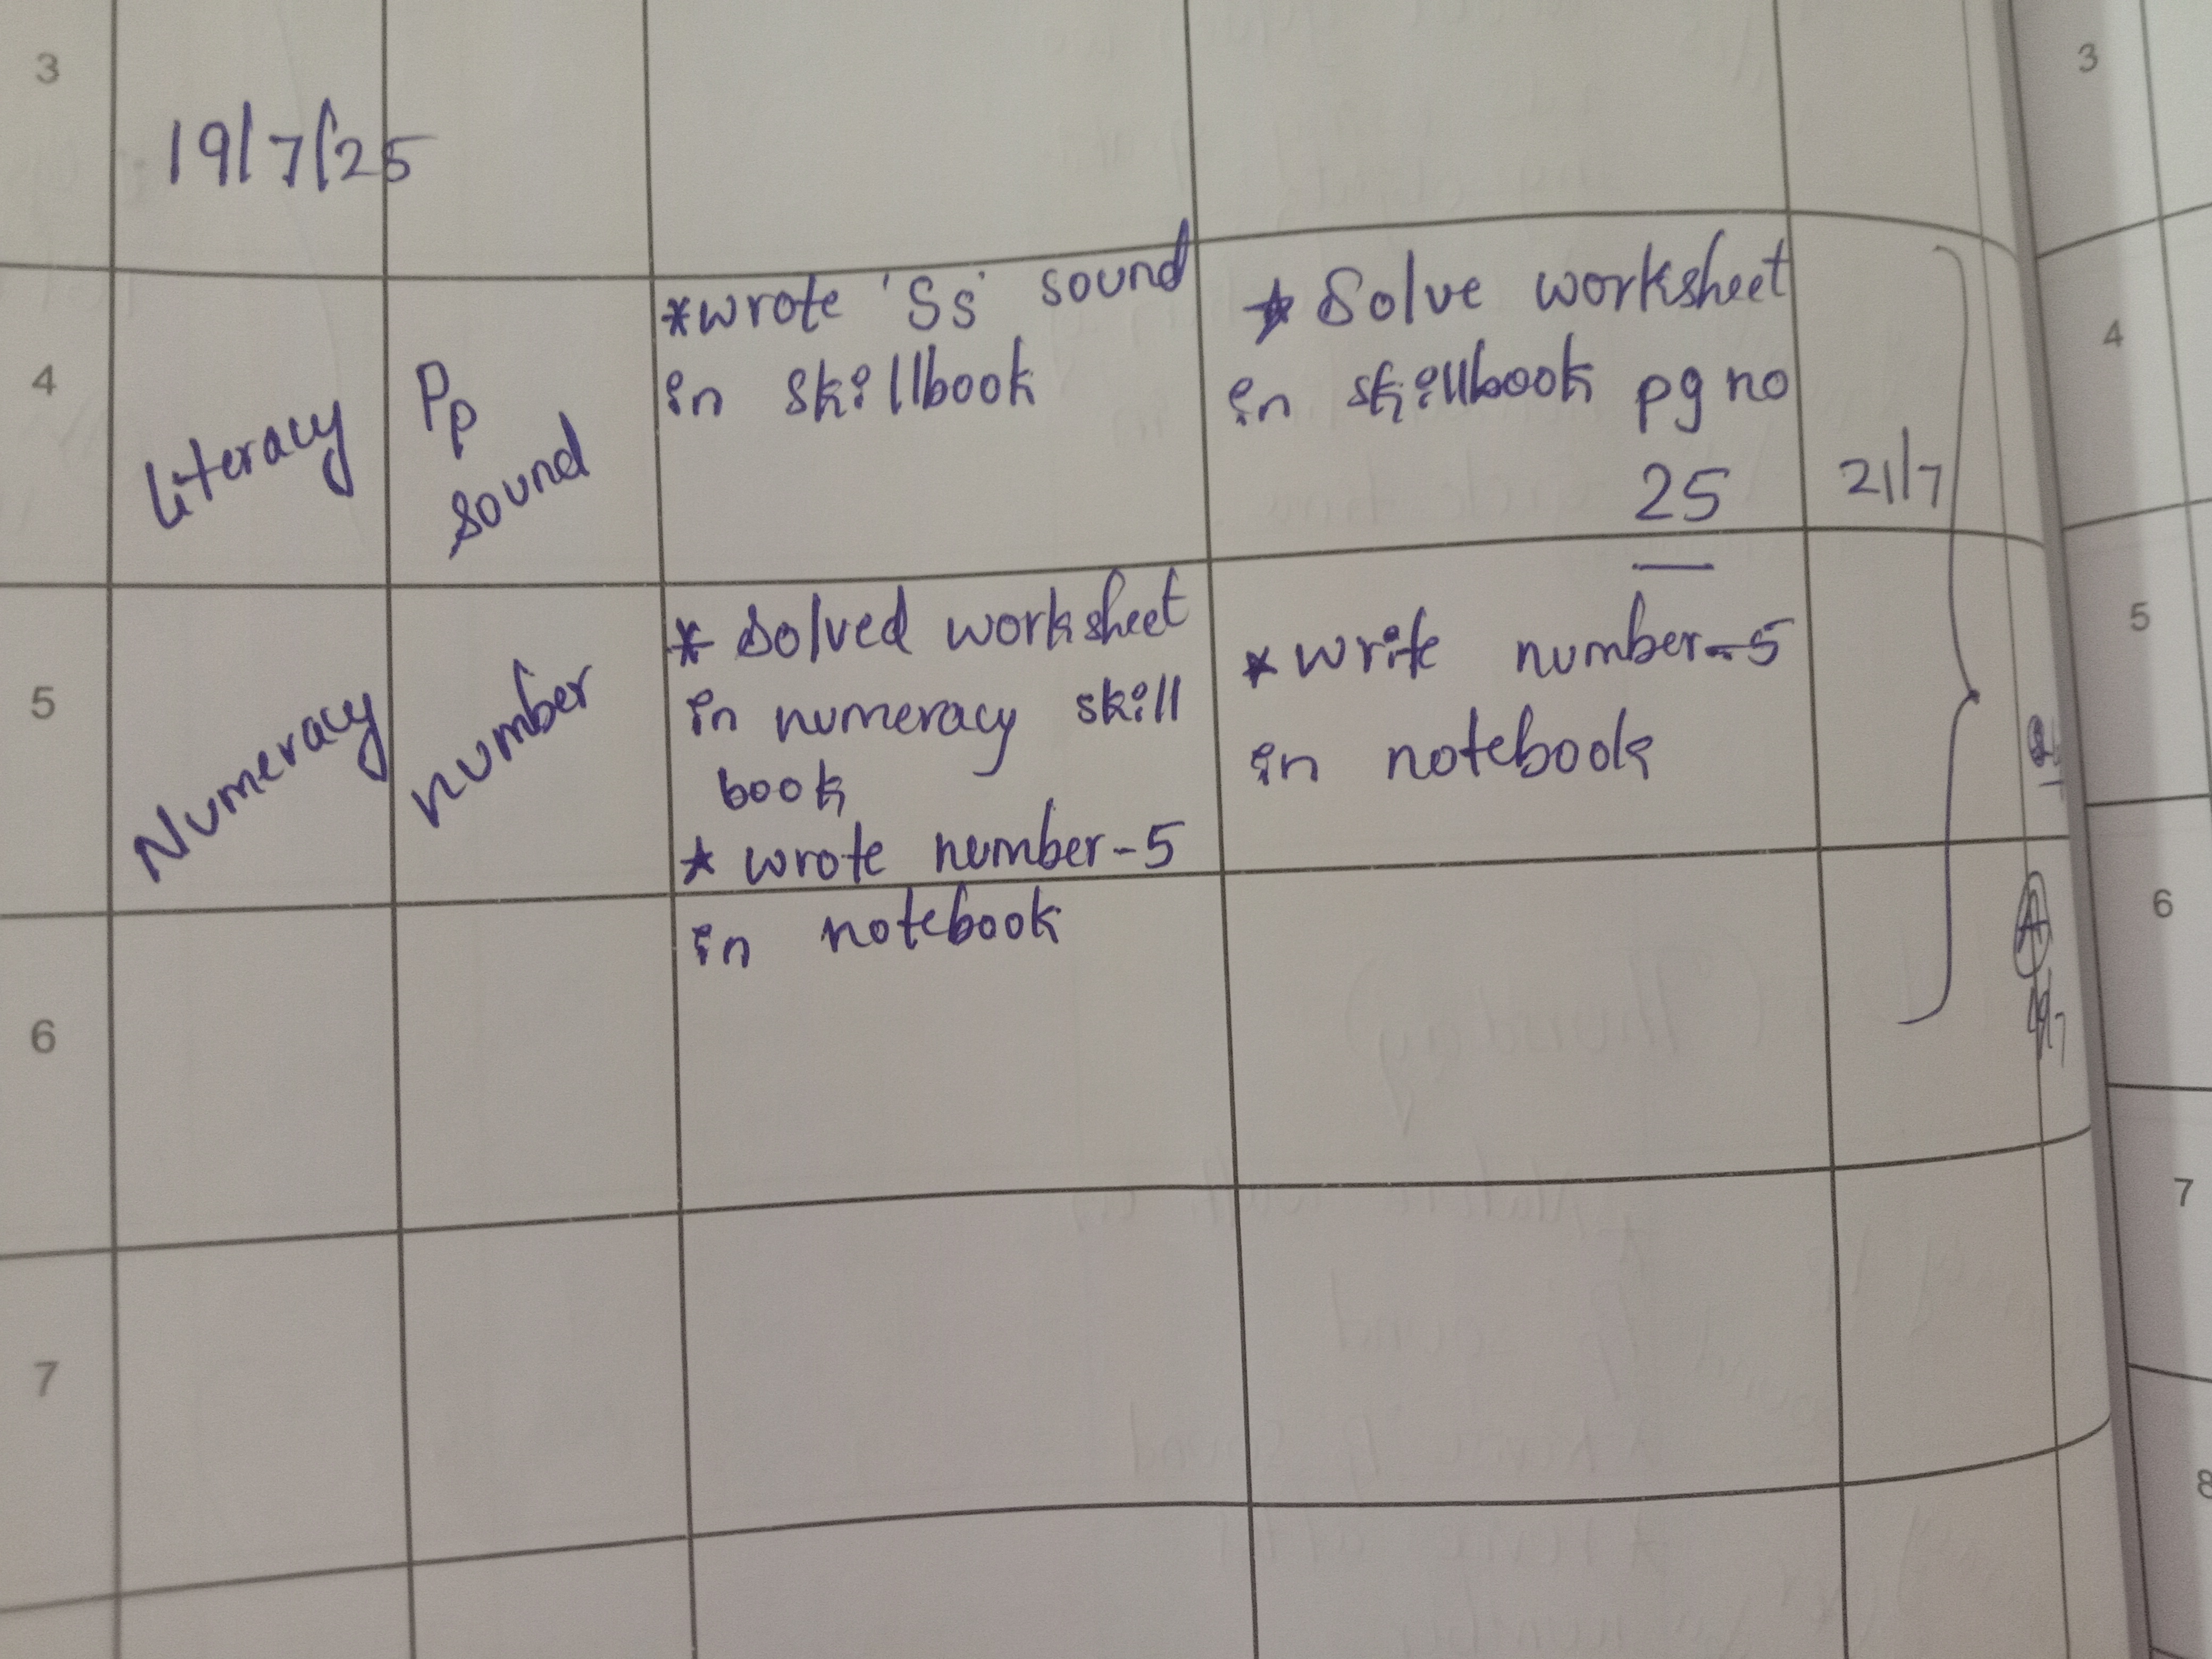 3
19/7/25
4
Literacy
Pp
sound
*wrote 'Ss' sound
in skillbook
* Solve worksheet
in skillbook pg no
25
21/7
5
Numeracy
number
* Solved worksheet
in numeracy skill
book
* wrote number-5
in notebook
* write number-5
in notebook
6
7
3
4
5
6
7
8